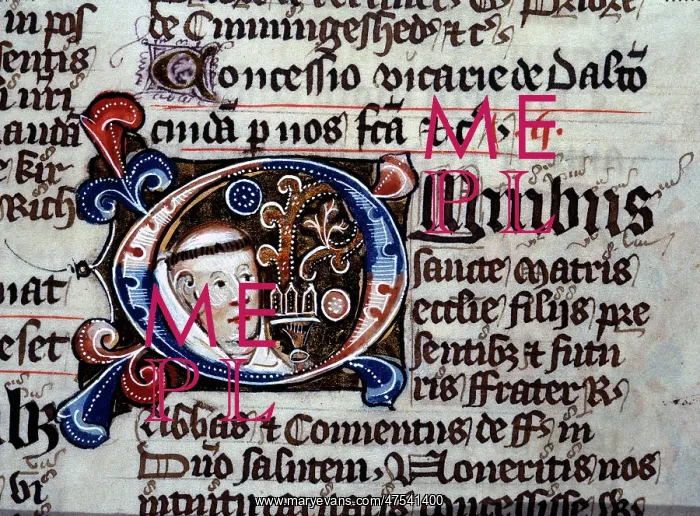 in pos
sentis
iuri
landā
kir
Rich
nat
eset
lb
vi
de Cunningesheds & cꝰ
Concessio vicarie de Daltō
cuidā p nos fcā
Omnibus
sancte Matris
ecclie filijs pre
sentibȝ & futu
ris ffrater Rꝰ
Abbas & Conuentus de ffꝰ in
Dn̄o salutem, Noueritis nos
ME
PL
ME
PL
www.maryevans.com/47541400